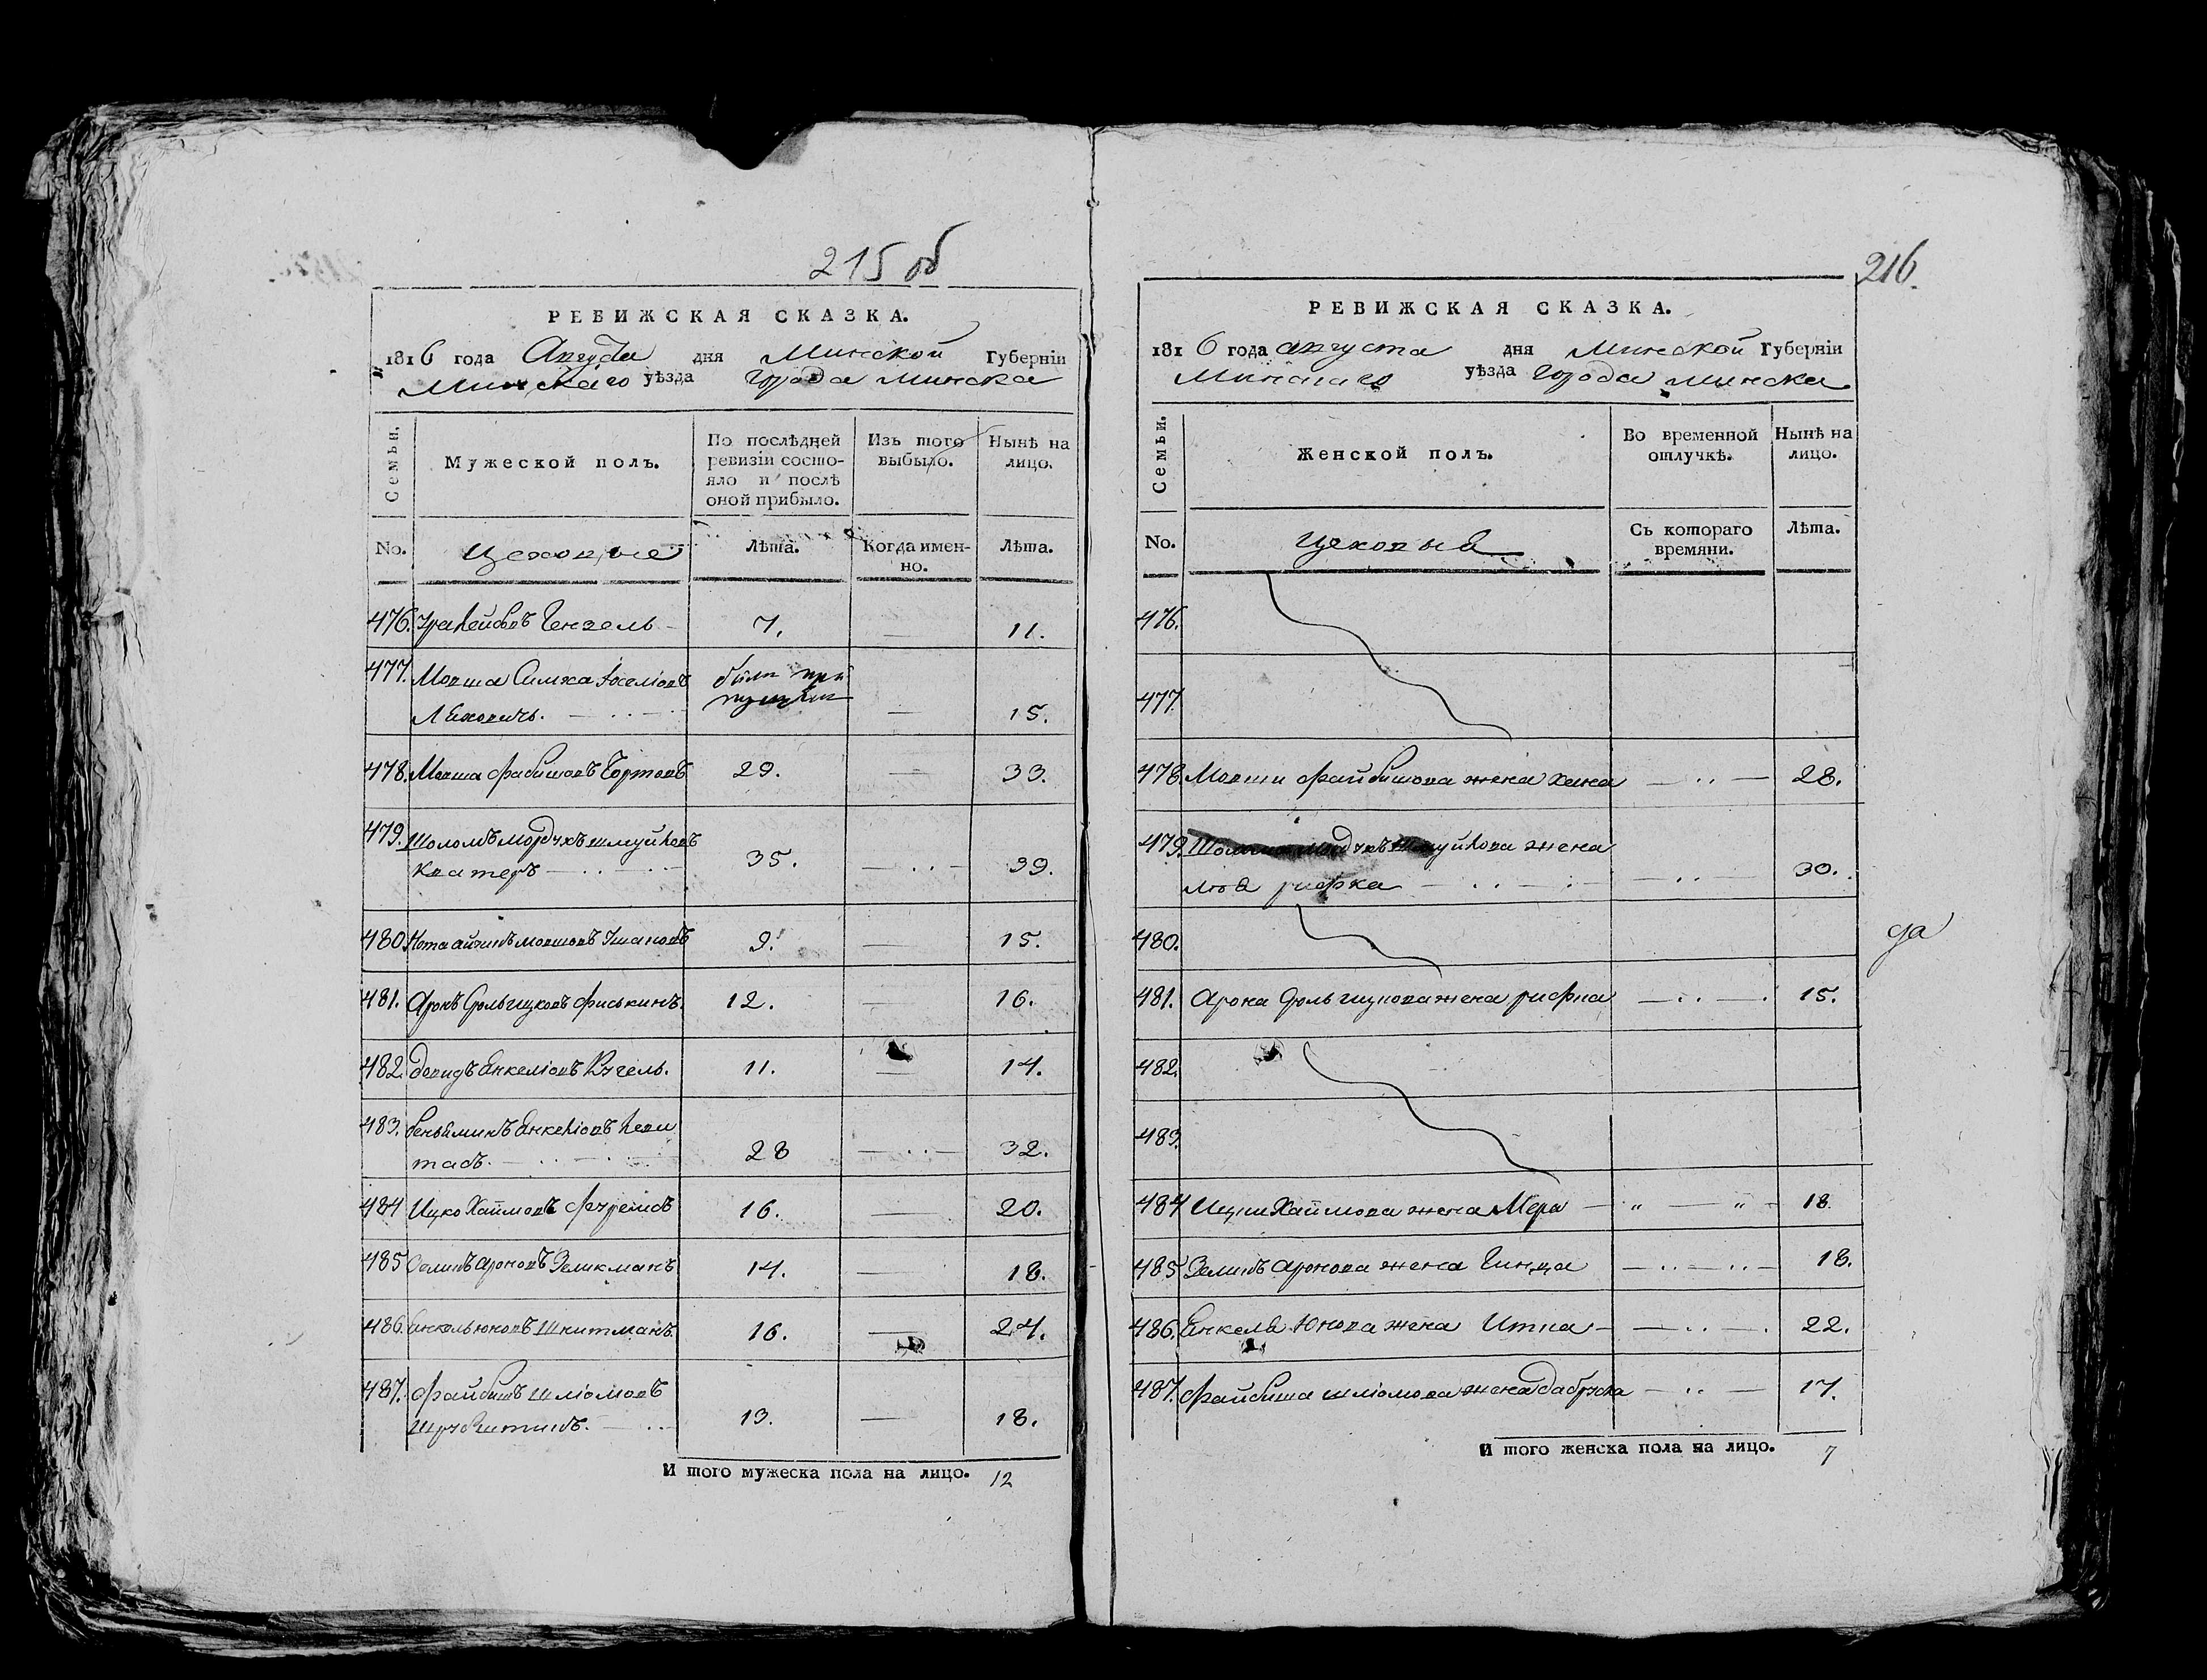 215 об
РЕВИЖСКАЯ СКАЗКА.
1816 года Августа дня Минской Губерніи
Минскаго уѣзда города Минска
Семьи.
Мужеской полъ.
По послѣдней ревизіи состояло и послѣ оной прибыло.
Изъ того выбыло.
Нынѣ на лицо.
No.
цеховые
Лѣта.
Когда именно.
Лѣта.
476. Гензель 7. — 11.
477. Мовша Симха Іоселіовъ были при
Леховичъ. — 15.
478. Мовша Фабишовъ 29. — 33.
479. Шоломъ Мордухъ Шмуйловъ
Кватеръ 35. — 39.
480. Нота Айзикъ Мовшовъ 9. — 15.
481. Аронъ Сроль Ицковъ Фиськинъ. 12. — 16.
482. Довидъ Енкеліовъ Кугель. 11. — 14.
483. Беньяминъ Енкеліовъ Леви
тасъ. 28 — 32.
484 Ицко Хаймовъ 16. — 20.
485 Зеликъ Ароновъ Зеликманъ 14. — 18.
486. Енкель Юновъ Шкитманъ. 16. — 24.
487. Файбишъ Шліомовъ
13. — 18.
И того мужеска пола на лицо. 12
216.
РЕВИЖСКАЯ СКАЗКА.
1816 года августа дня Минской Губерніи
Минскаго уѣзда города Минска
Семьи.
Женской полъ.
Во временной отлучкѣ.
Нынѣ на лицо.
No.
цеховыя
Съ котораго времяни.
Лѣта.
476.
477.
478. Мовши Файбишова жена Хана — 28.
479. Мордухъ Шмуйлова жена
рифка — 30.
480.
да
481. Арона Сроль Ицкова жена рифка — 15.
482.
483.
484 Ицки Хаймова жена Мера — 18
485 Зелика Аронова жена Гинда — 18.
486. Енкеля Юнова жена Итка — 22.
487. Файбиша Шліомова жена Дабруска — 17.
И того женска пола на лицо. 7